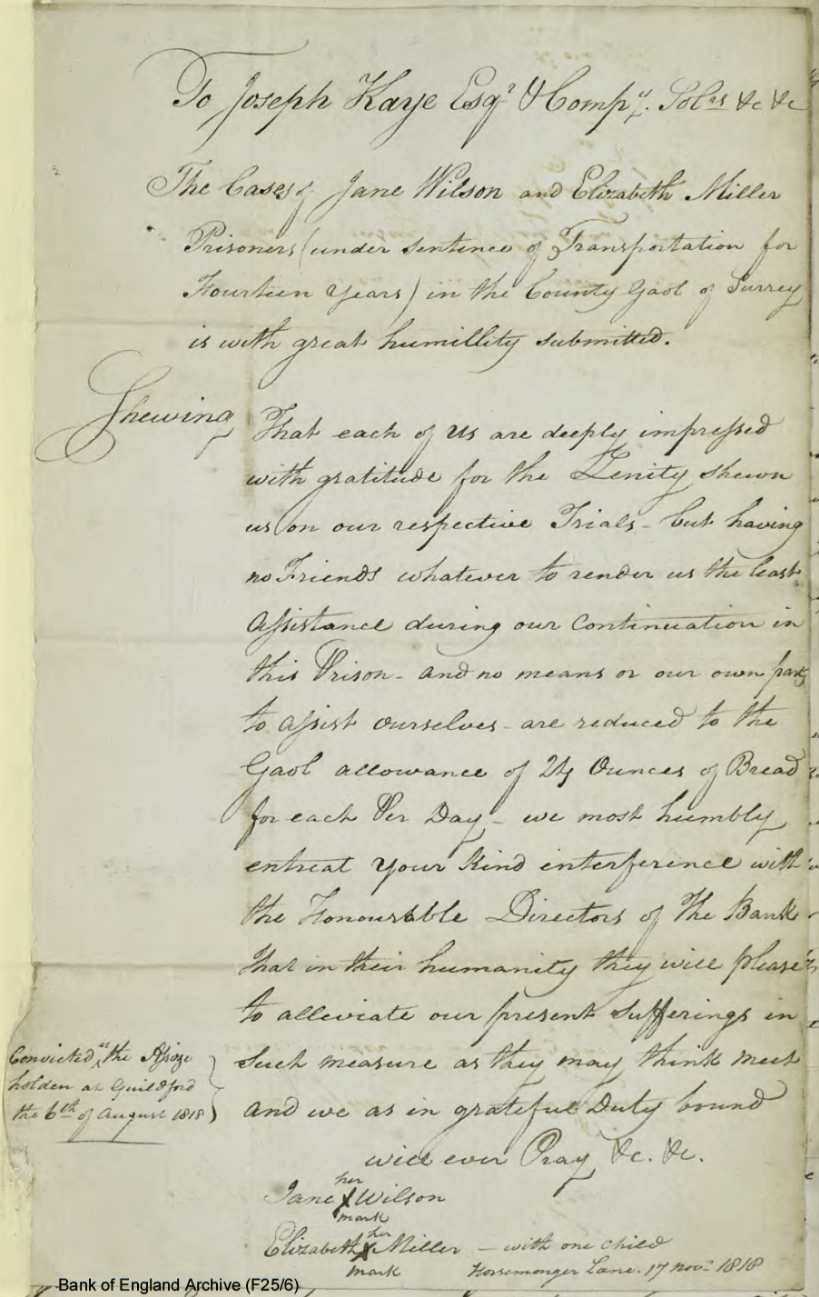 To Joseph Kaye Esqr & Compy. Solrs &c &c
The Cases of Jane Wilson and Elizabeth Miller
Prisoners (under sentence of Transportation for
Fourteen Years) in the County Gaol of Surrey
is with great humillity submitted.
Shewing That each of us are deeply impressed
with gratitude for the Lenity shewn
us on our respective Trials - but having
no Friends whatever to render us the least
Assistance during our Continuation in
this Prison - and no means on our own part
to assist ourselves - are reduced to the
Gaol allowance of 24 Ounces of Bread
for each Per Day - we most humbly
entreat your kind interference with
the Honourable Directors of the Bank
that in their humanity they will please
to alleviate our present sufferings in
such measure as they may think meet
and we as in grateful Duty bound
will ever Pray &c. &c.
Convicted at the Assize
holden at Guildford
the 6th of August 1818
her
Jane X Wilson
mark
her
Elizabeth X Miller - with one child
mark Horsemonger Lane. 17 Novr 1818
Bank of England Archive (F25/6)